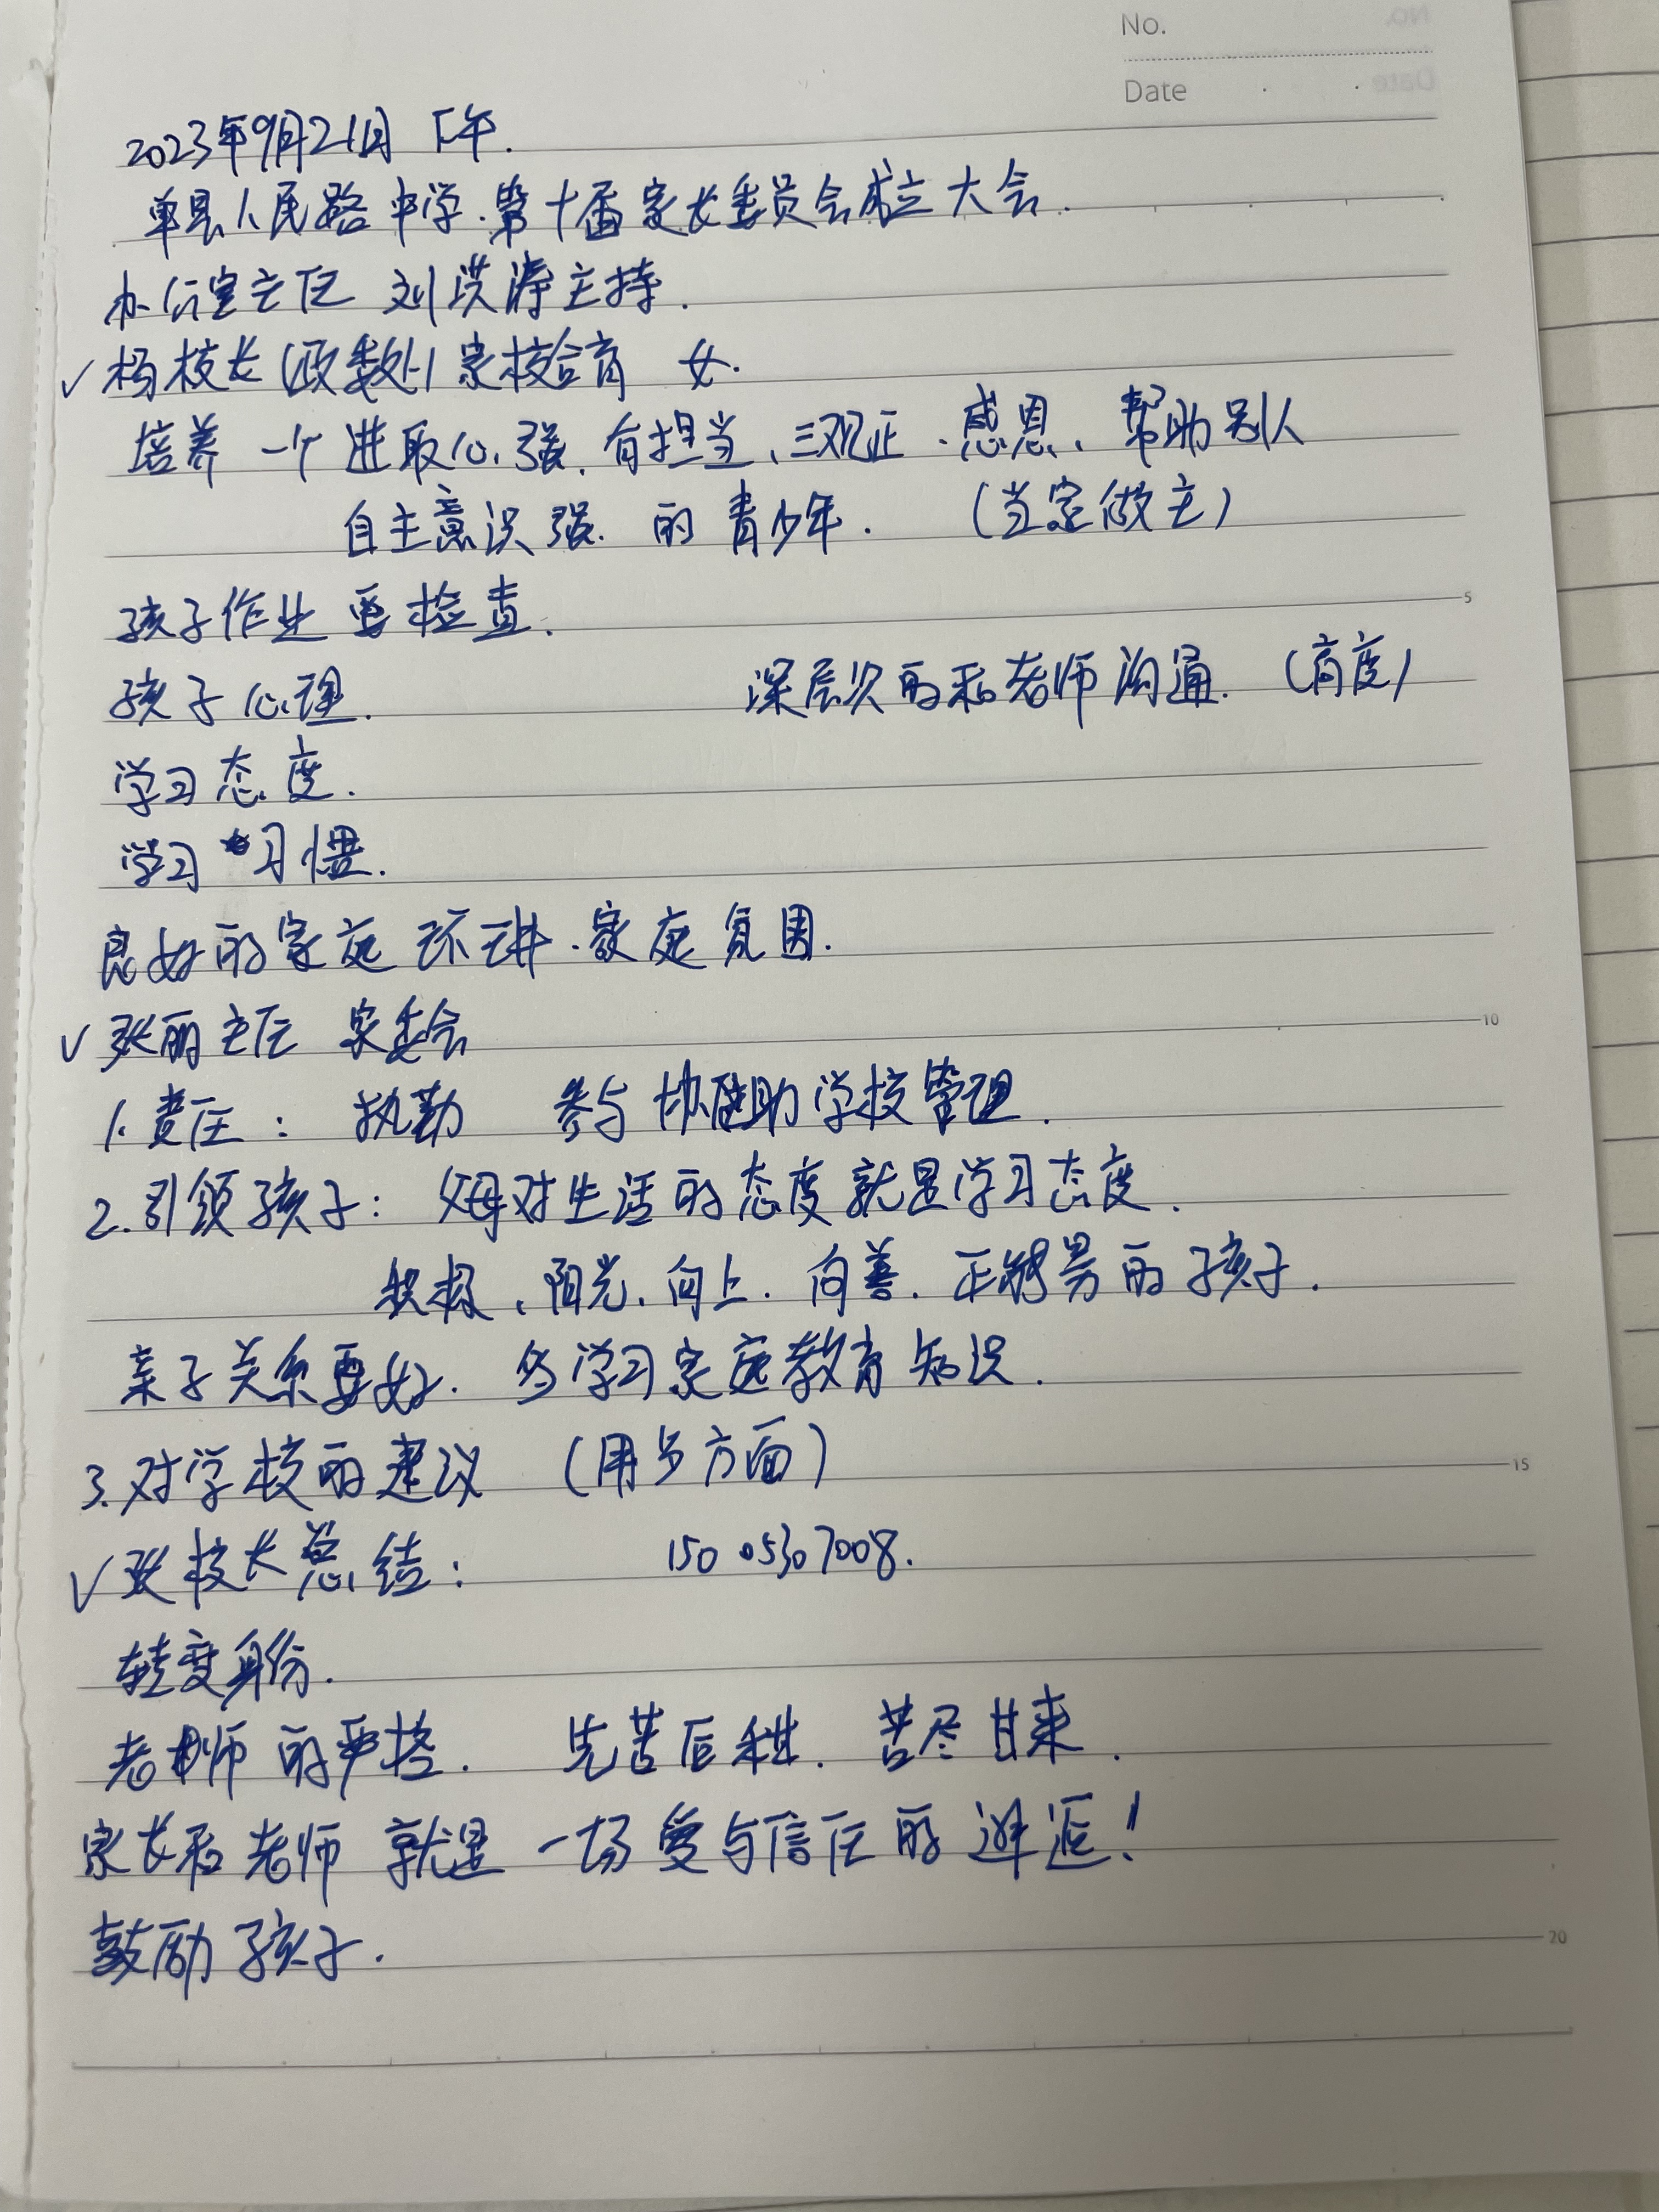 No.
Date
2023年9月21日 下午.
单县人民路中学.第十届家长委员会成立大会.
办公室主任 刘洪涛主持.
✓杨校长(政教处)家校合育 女.
培养一个进取心强.有担当、三观正、感恩、帮助别人
自主意识强.的青少年. (当家做主)
孩子作业要检查.
5
孩子心理. 深层次的和老师沟通. (高度)
学习态度.
学习习惯.
良好的家庭环境.家庭氛围.
✓张丽主任 家委会
10
1.责任: 执勤 参与协助学校管理.
2.引领孩子: 父母对生活的态度就是学习态度.
积极、阳光、向上.向善.正能量的孩子.
亲子关系要好. 多学习家庭教育知识.
3.对学校的建议 (用多方面)
15
✓张校长总结: 150 0530 7008.
转变身份.
老师的严格. 先苦后甜. 苦尽甘来.
家长和老师就是一场爱与信任的邂逅!
鼓励孩子.
20